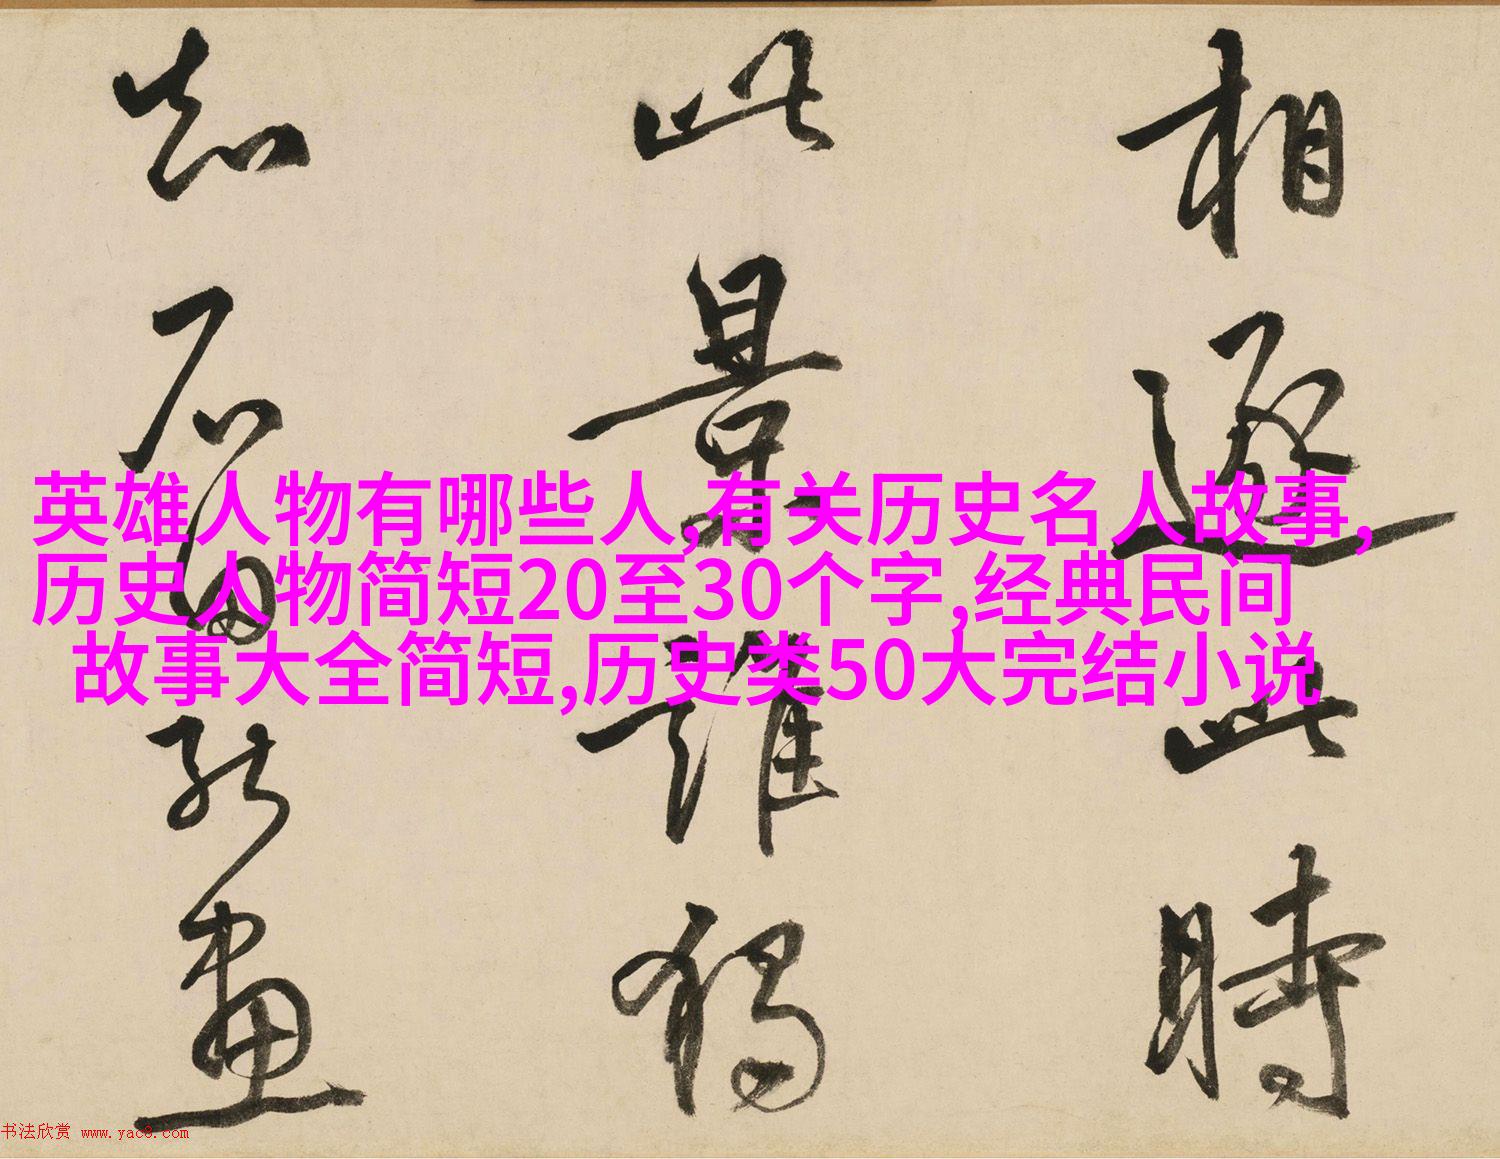 相逐此時
此景誰獨
知石田能畫
英雄人物有哪些人,有关历史名人故事,
历史人物简短20至30个字,经典民间
故事大全简短,历史类50大完结小说
书法欣赏 www.yac8.com